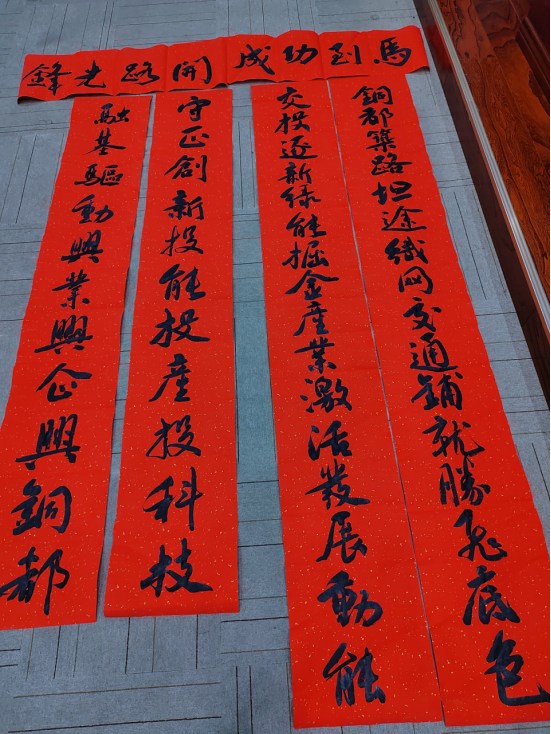 馬到功成開路先鋒
銅都築路坦途織网交通鋪就騰飛底色
交投逐新绿能掘金產業激活發展動能
守正創新投能投產投科技
融基驅動興業興企興銅都